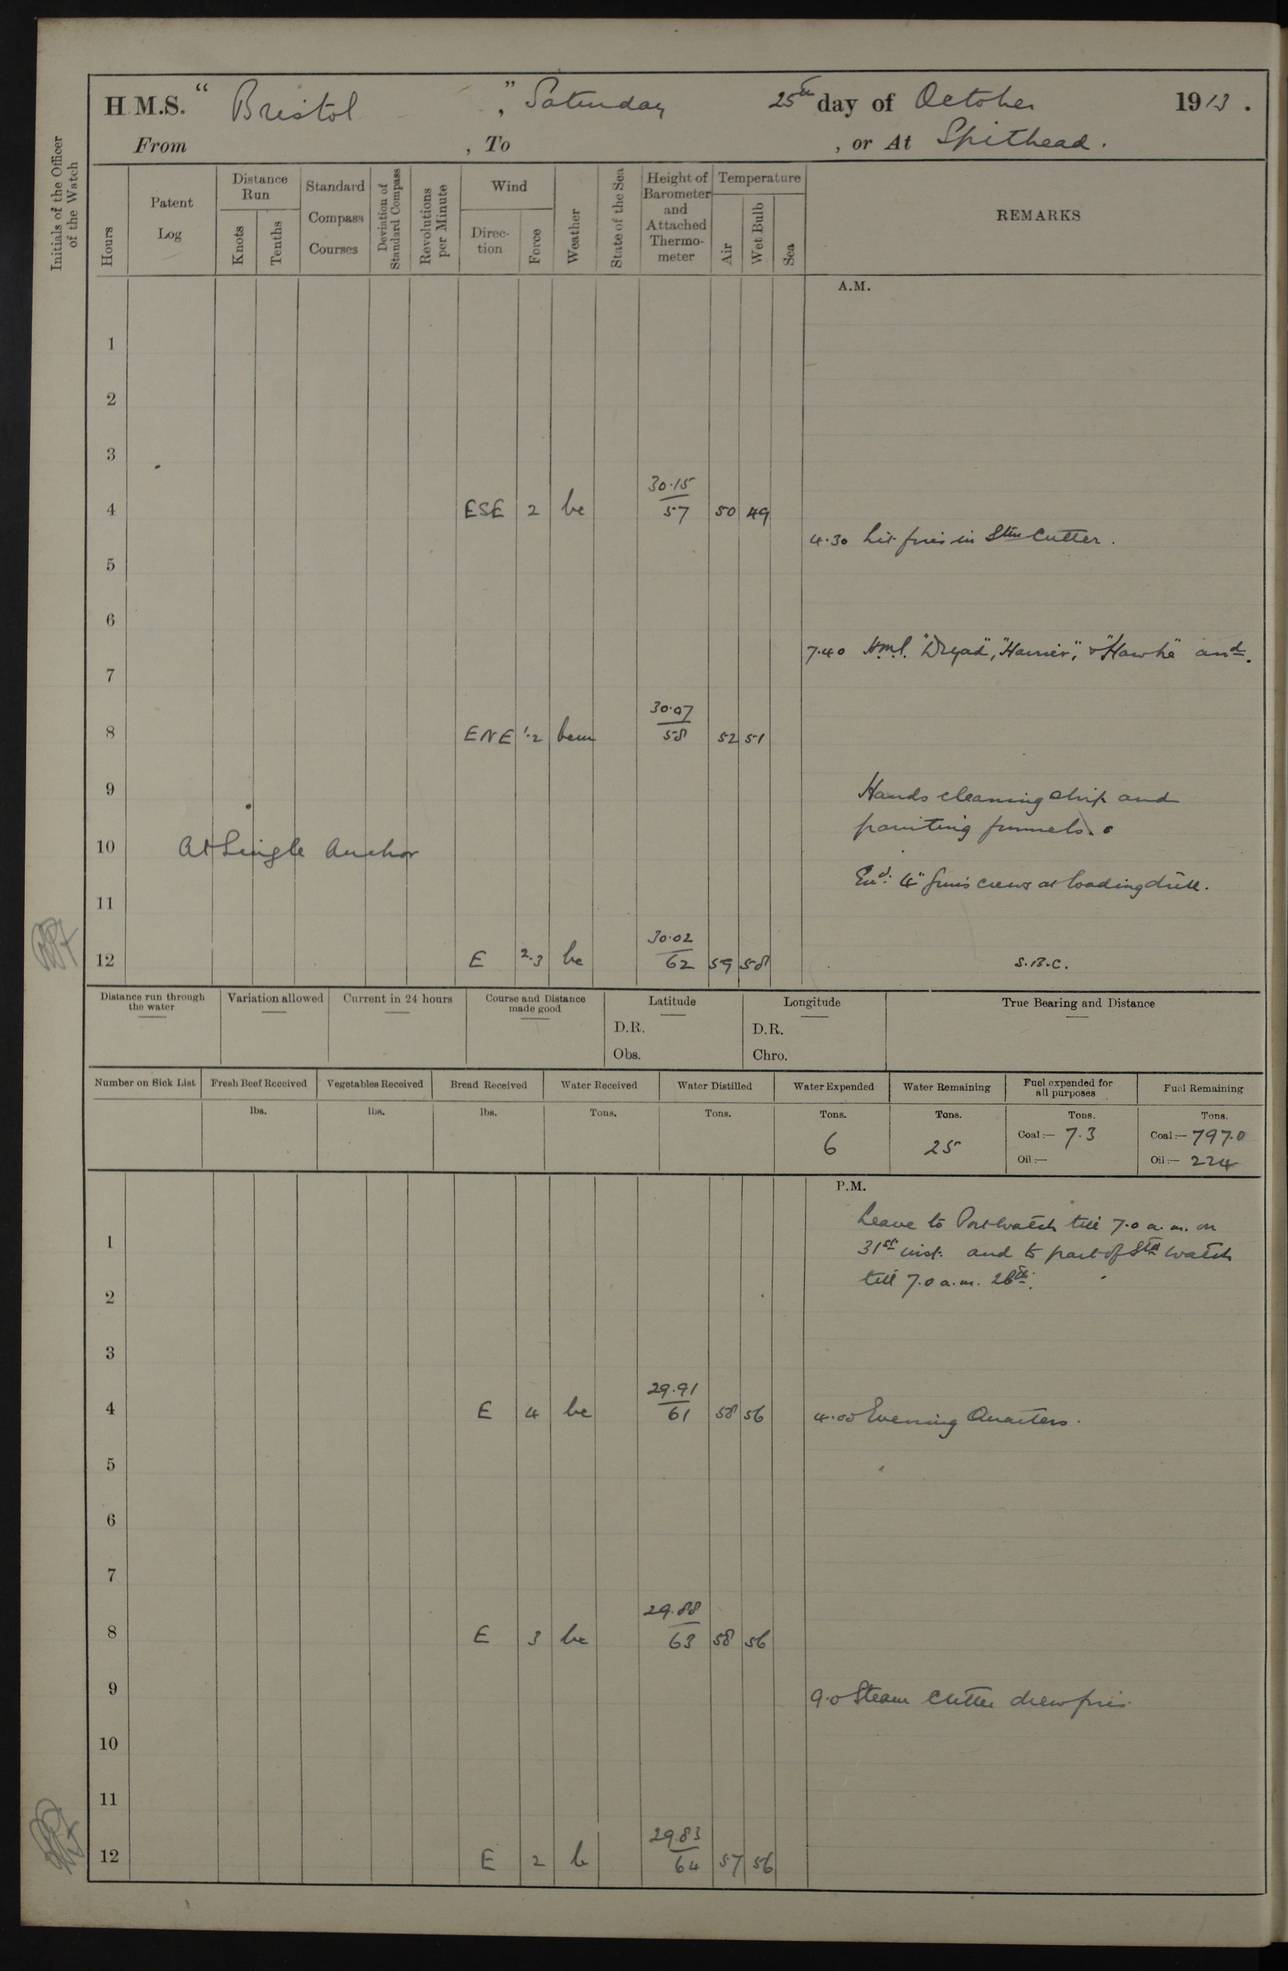 H.M.S. " Bristol ", Saturday 25th day of October 1913.
From , To , or At Spithead.
Initials of the Officer of the Watch
Hours
Patent Log
Distance Run
Knots
Tenths
Standard Compass Courses
Deviation of Standard Compass
Revolutions per Minute
Wind
Direction
Force
Weather
State of the Sea
Height of Barometer and Attached Thermometer
Temperature
Air
Wet Bulb
Sea
REMARKS
A.M.
1
2
3
4 ESE 2 bc 30.15 57 50 49
4.30 Lit fires in Stm Cutter.
5
6
7.40 H.M.S. "Dryad", "Harrier", & "Hawke" and.
7
8 ENE 1.2 bcm 30.07 58 52 51
9 Hands cleaning ship and
painting funnels.
10 At Single Anchor
4" guns crews at loading drill.
11
12 E 2.3 bc 30.02 62 59 58 S.B.C.
Distance run through the water
Variation allowed
Current in 24 hours
Course and Distance made good
Latitude
D.R.
Obs.
Longitude
D.R.
Chro.
True Bearing and Distance
Number on Sick List
Fresh Beef Received lbs.
Vegetables Received lbs.
Bread Received lbs.
Water Received Tons.
Water Distilled Tons.
Water Expended Tons. 6
Water Remaining Tons. 25
Fuel expended for all purposes Tons.
Coal:— 7.3
Oil:—
Fuel Remaining Tons.
Coal:— 797.0
Oil:— 224
P.M.
Leave to Port Watch till 7.0 a.m. on
1 31st inst. and to part of Std watch
till 7.0 a.m. 26th.
2
3
4 E 4 bc 29.91 61 58 56 4.00 Evening Quarters.
5
6
7
8 E 3 bc 29.88 63 58 56
9 9.0 Steam Cutter drew fires.
10
11
12 E 2 b 29.83 64 57 56